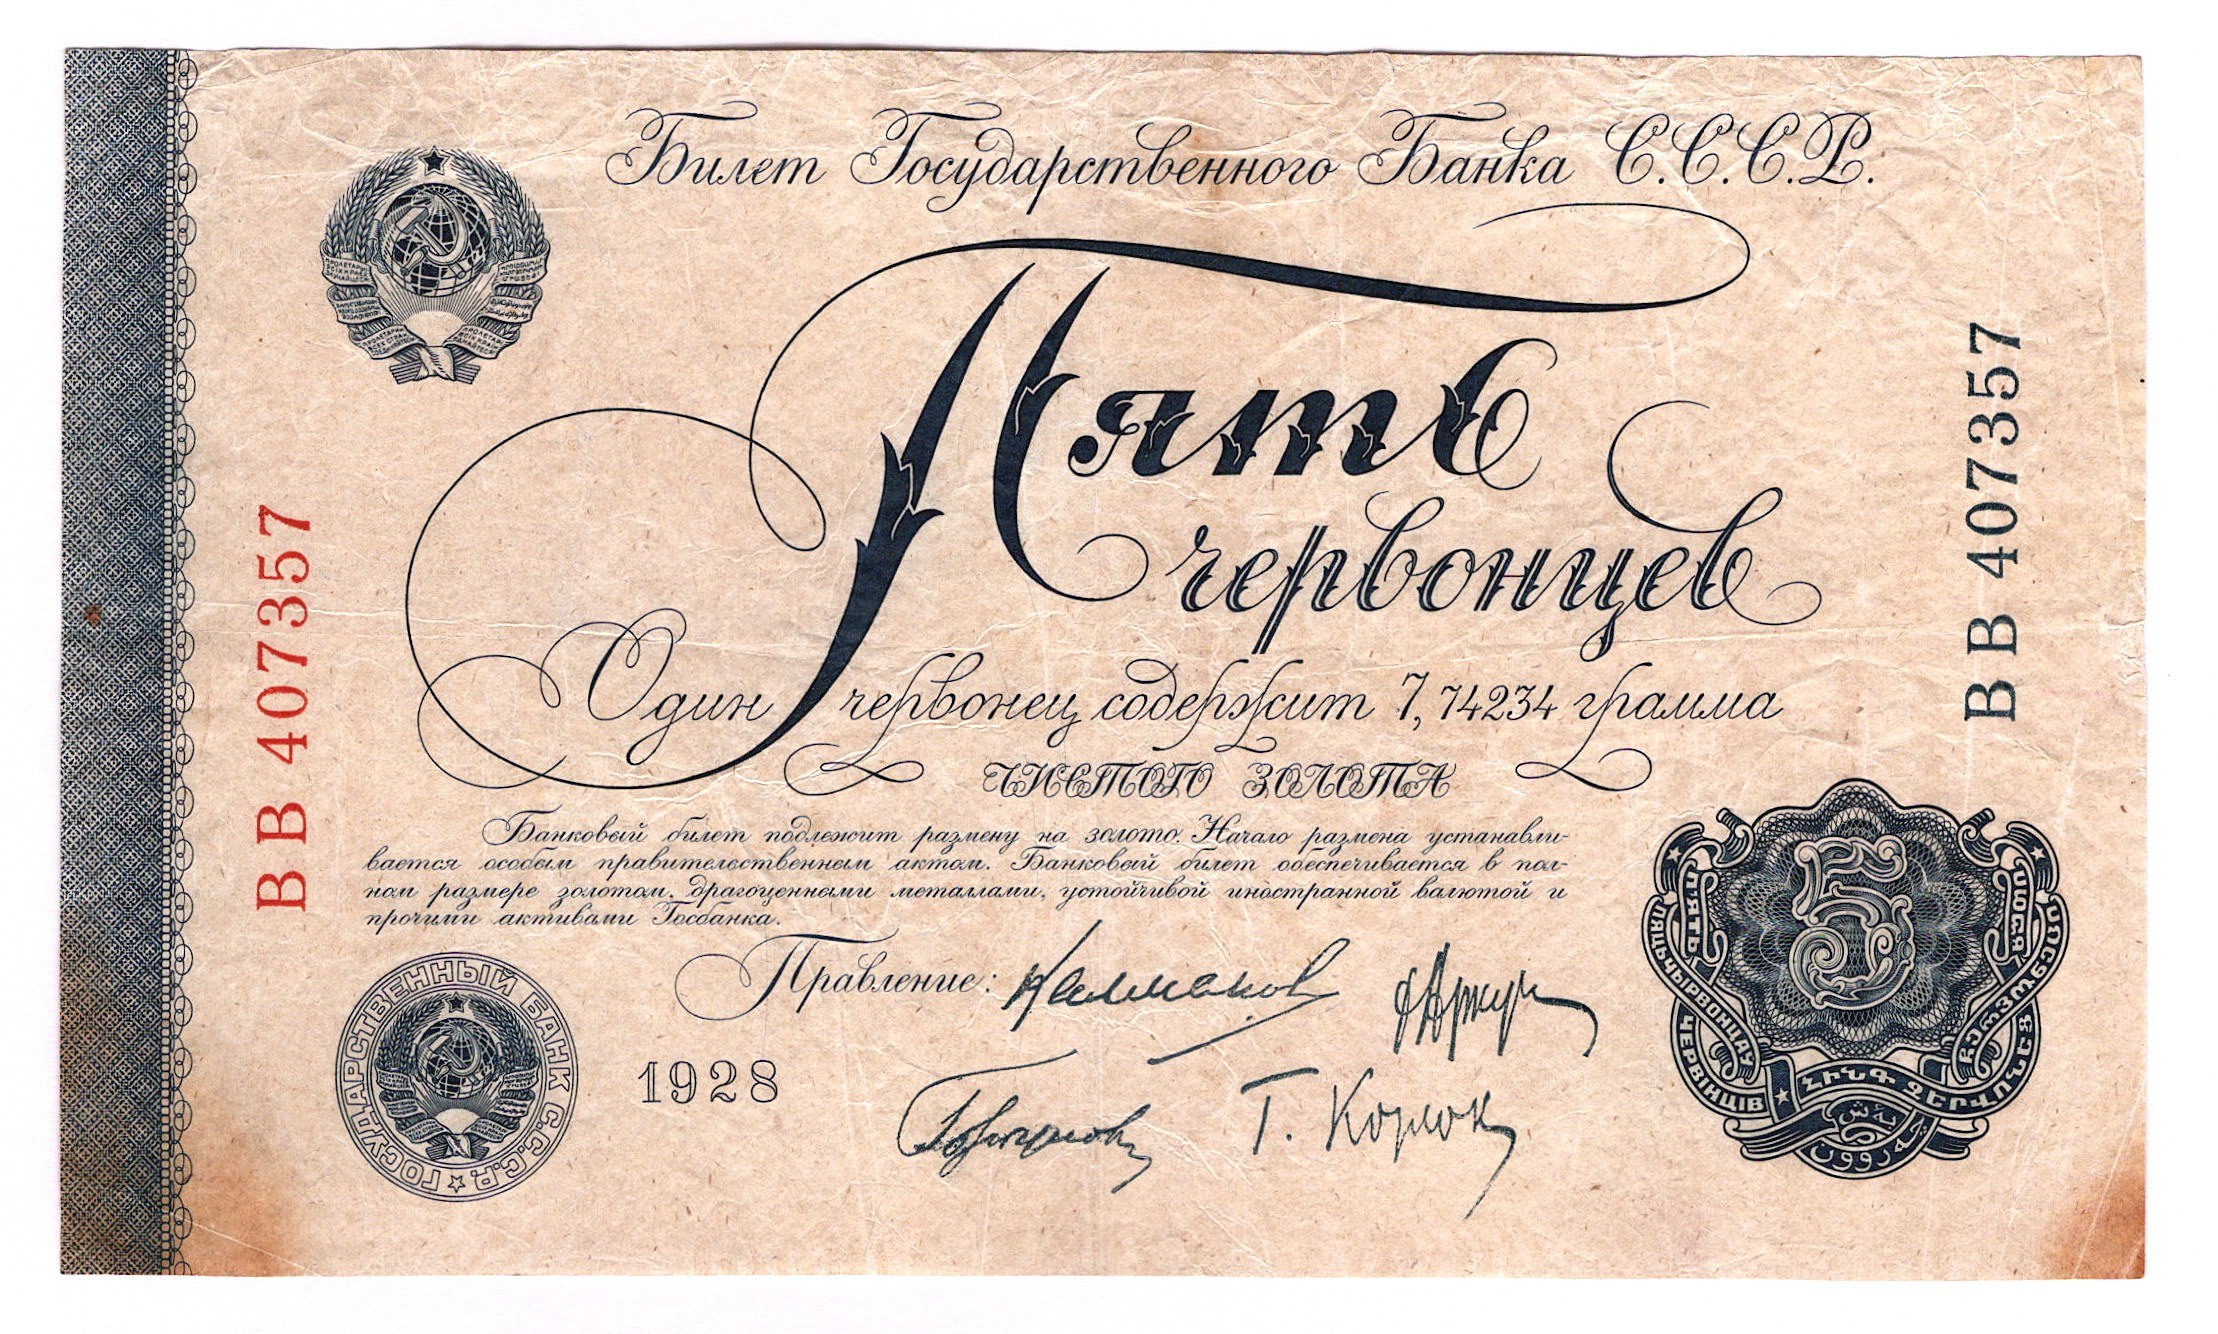 Билет Государственного Банка С.С.С.Р.
Пять
червонцев
Один червонец содержит 7,74234 грамма
ЧИСТОГО ЗОЛОТА
Банковый билет подлежит размену на золото. Начало размена устанавли-
вается особым правительственным актом. Банковый билет обеспечивается в пол-
ном размере золотом, драгоценными металлами, устойчивой иностранной валютой и
прочими активами Госбанка.
Правление:
1928
ВВ 407357
ВВ 407357
ГОСУДАРСТВЕННЫЙ БАНК С.С.С.Р.
5
ПЯТЬ
ПЯЦЬ ЧЫРВОНЦАУ
ЧЕРВІНЦІВ
ՀԻՆԳ ՉԵՐՎՈՆԵՑ
Т. Корлок